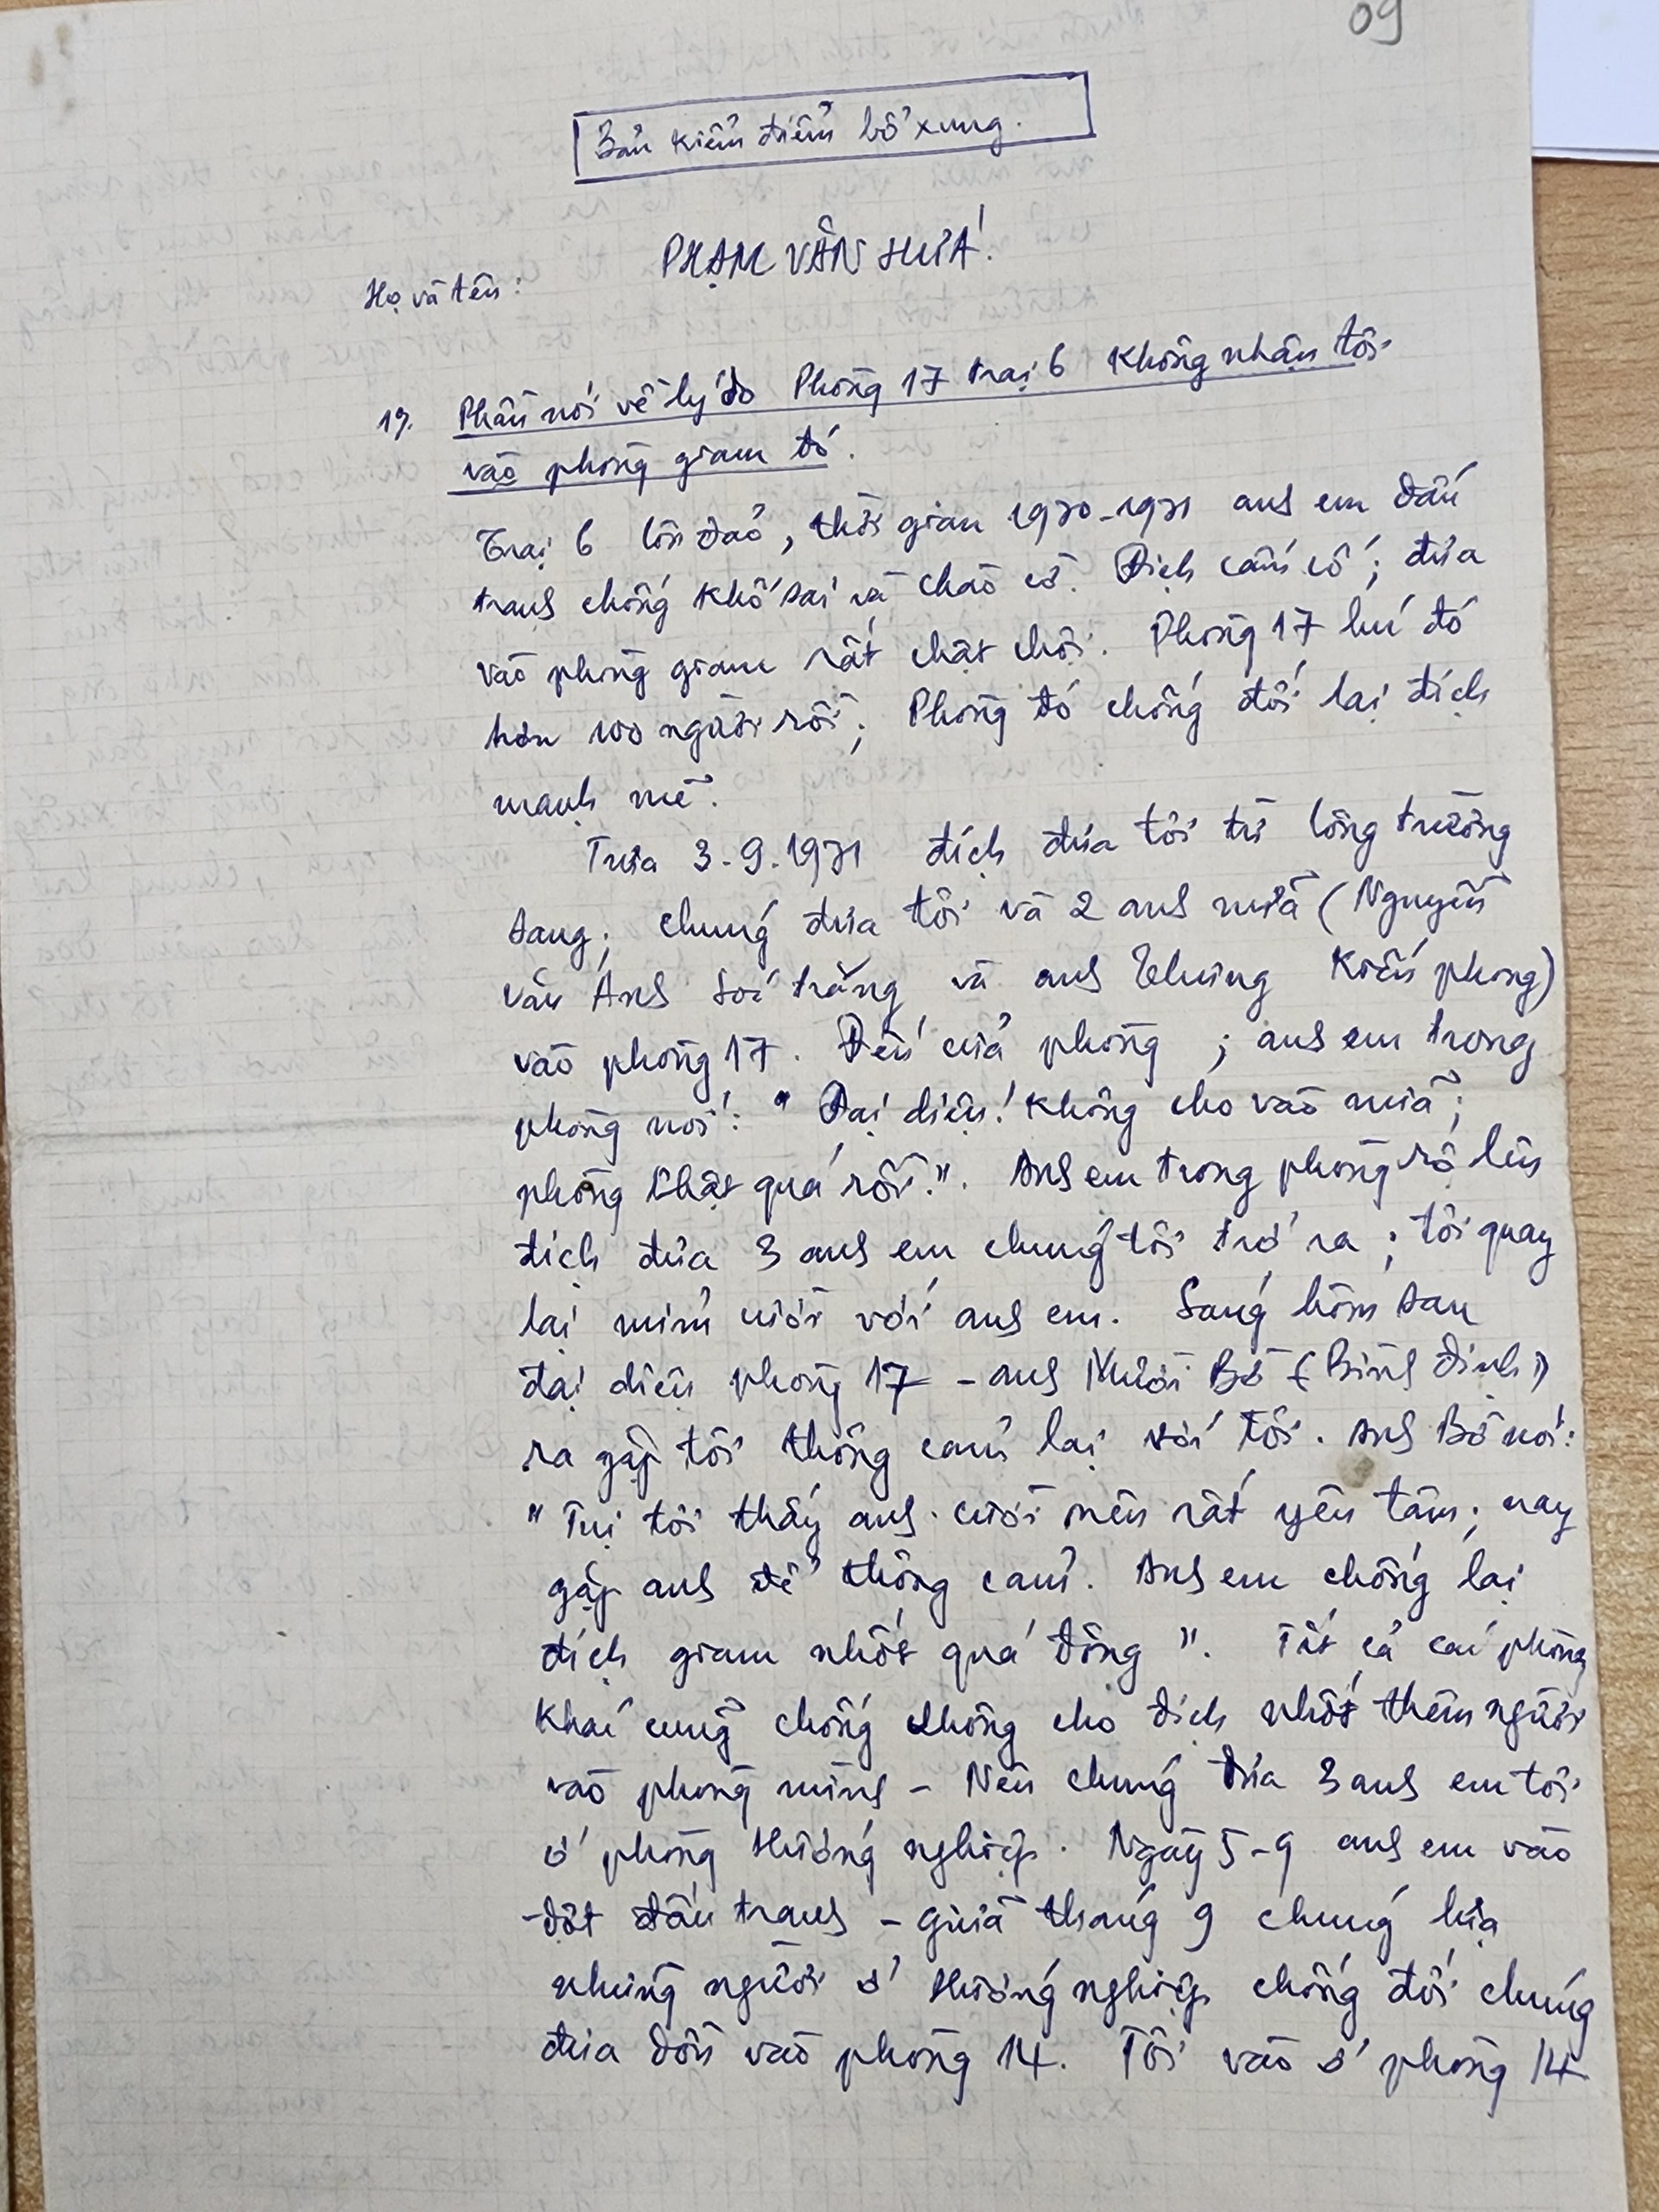 09
Bản kiểm điểm bổ xung.
PHẠM VĂN HỨA!
Họ và tên:
19. Phần nói về lý do Phòng 17 trại 6 không nhận tôi
vào phòng giam đó.
Trại 6 Côn đảo, thời gian 1970-1971 anh em đấu
tranh chống khổ sai và chào cờ. Địch cấm cố; đưa
vào phòng giam rất chật chội. Phòng 17 lúc đó
hơn 100 người rồi; Phòng đó chống đối lại địch
mạnh mẽ.
Trưa 3.9.1971 địch đưa tôi từ lồng trường
sang; chúng đưa tôi và 2 anh nữa (Nguyễn
văn Ánh Sóc trăng và anh Kiến phong)
vào phòng 17. Đến cửa phòng; anh em trong
phòng nói: " Đại diện! Không cho vào nữa;
phòng chật quá rồi.". Anh em trong phòng rộ lên
địch đưa 3 anh em chúng tôi trở ra; tôi quay
lại mỉm cười với anh em. Sáng hôm sau
đại diện phòng 17 - anh Mười Bê (Bình định)
ra gặp tôi thông cảm lại với tôi. Anh Bê nói:
" Tụi tôi thấy anh cười nên rất yên tâm; nay
gặp anh để thông cảm. Anh em chống lại
địch giam nhốt quá đông ". Tất cả các phòng
khác cũng chống không cho địch nhốt thêm người
vào phòng mình - Nên chúng đưa 3 anh em tôi
ở phòng Hướng nghiệp. Ngày 5-9 anh em vào
đợt đấu tranh - giữa tháng 9 chúng lựa
những người ở Hướng nghiệp chống đối chúng
đưa dồn vào phòng 14. Tôi vào ở phòng 14